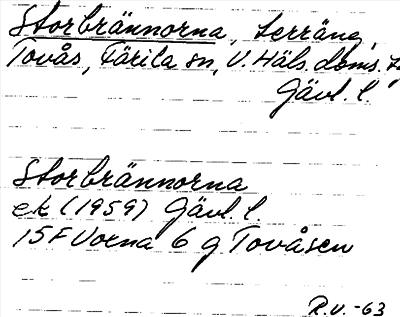 Storbrännorna, terräng,
Tovås, Färila sn, V. Häls. doms.
Gävl. l.
Storbrännorna
ek (1959) Gävl. l.
15F Vorna 6 g Tovåsen
R.V. -63